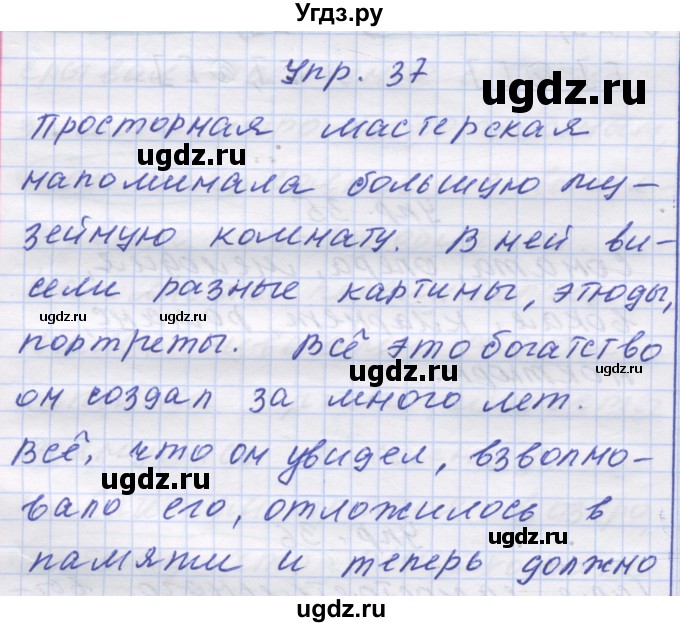 Угдз.ру
Упр. 37
Просторная мастерская
напоминала большую му-
зейную комнату. В ней ви-
сели разные картины, этюды,
портреты. Всё это богатство
он создал за много лет.
Всё, что он увидел, взволно-
вало его, отложилось в
памяти и теперь должно
ugdz.ru
ugdz.ru
ugdz.ru
ugdz.ru
ugdz.ru
ugdz.ru
ugdz.ru
ugdz.ru
ugdz.ru